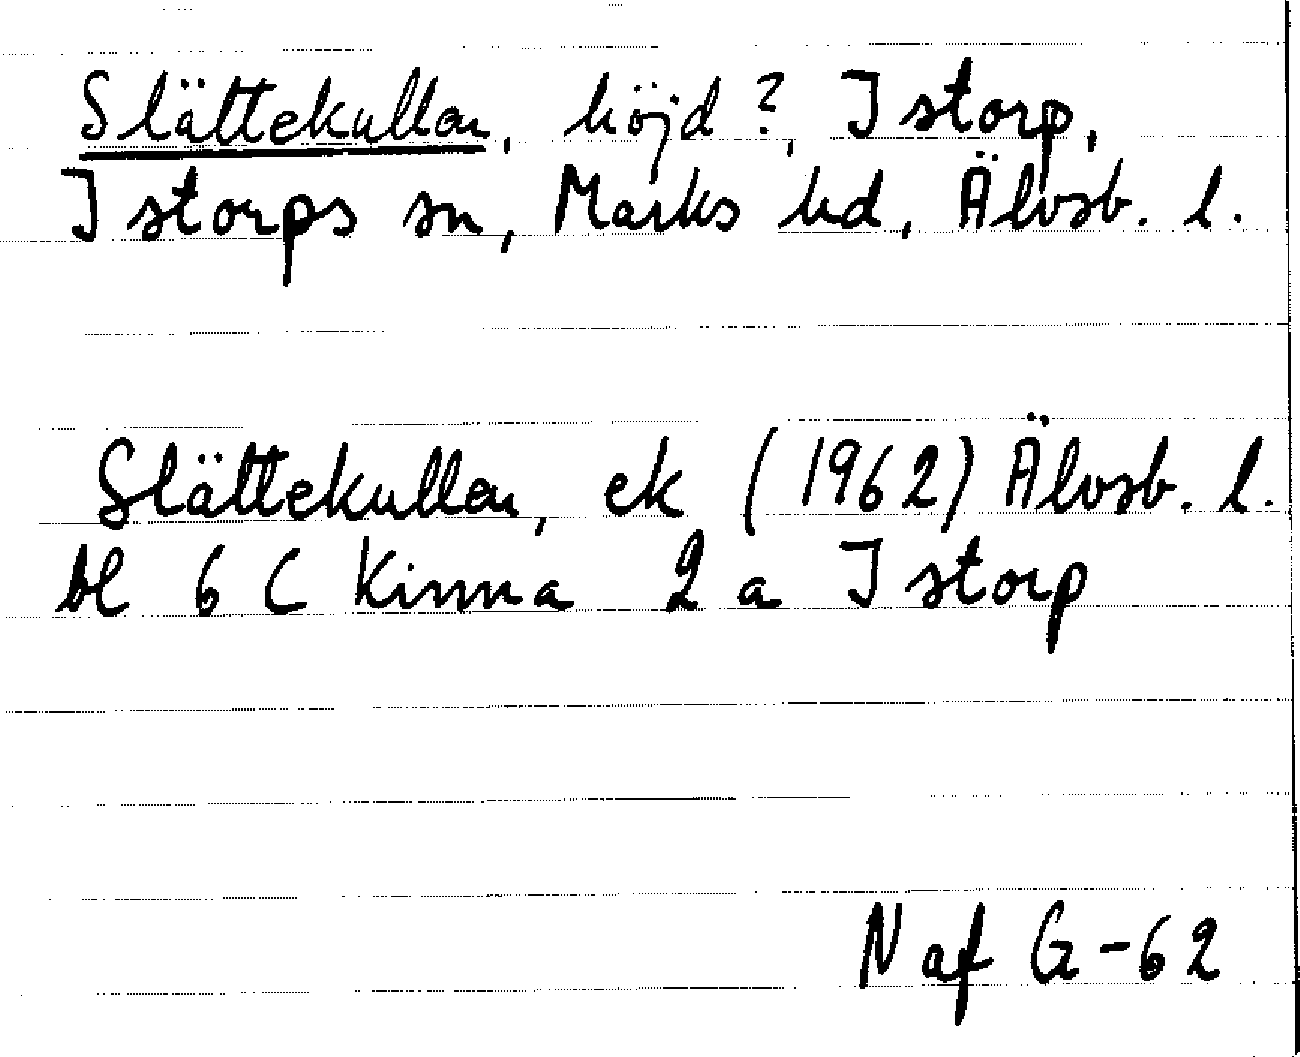 Slättekullen, höjd?, Istorp,
Istorps sn, Marks hd, Älvsb. l.
Slättekullen, ek (1962) Älvsb. l.
bl 6 C Kinna 2 a Istorp
N af G-62